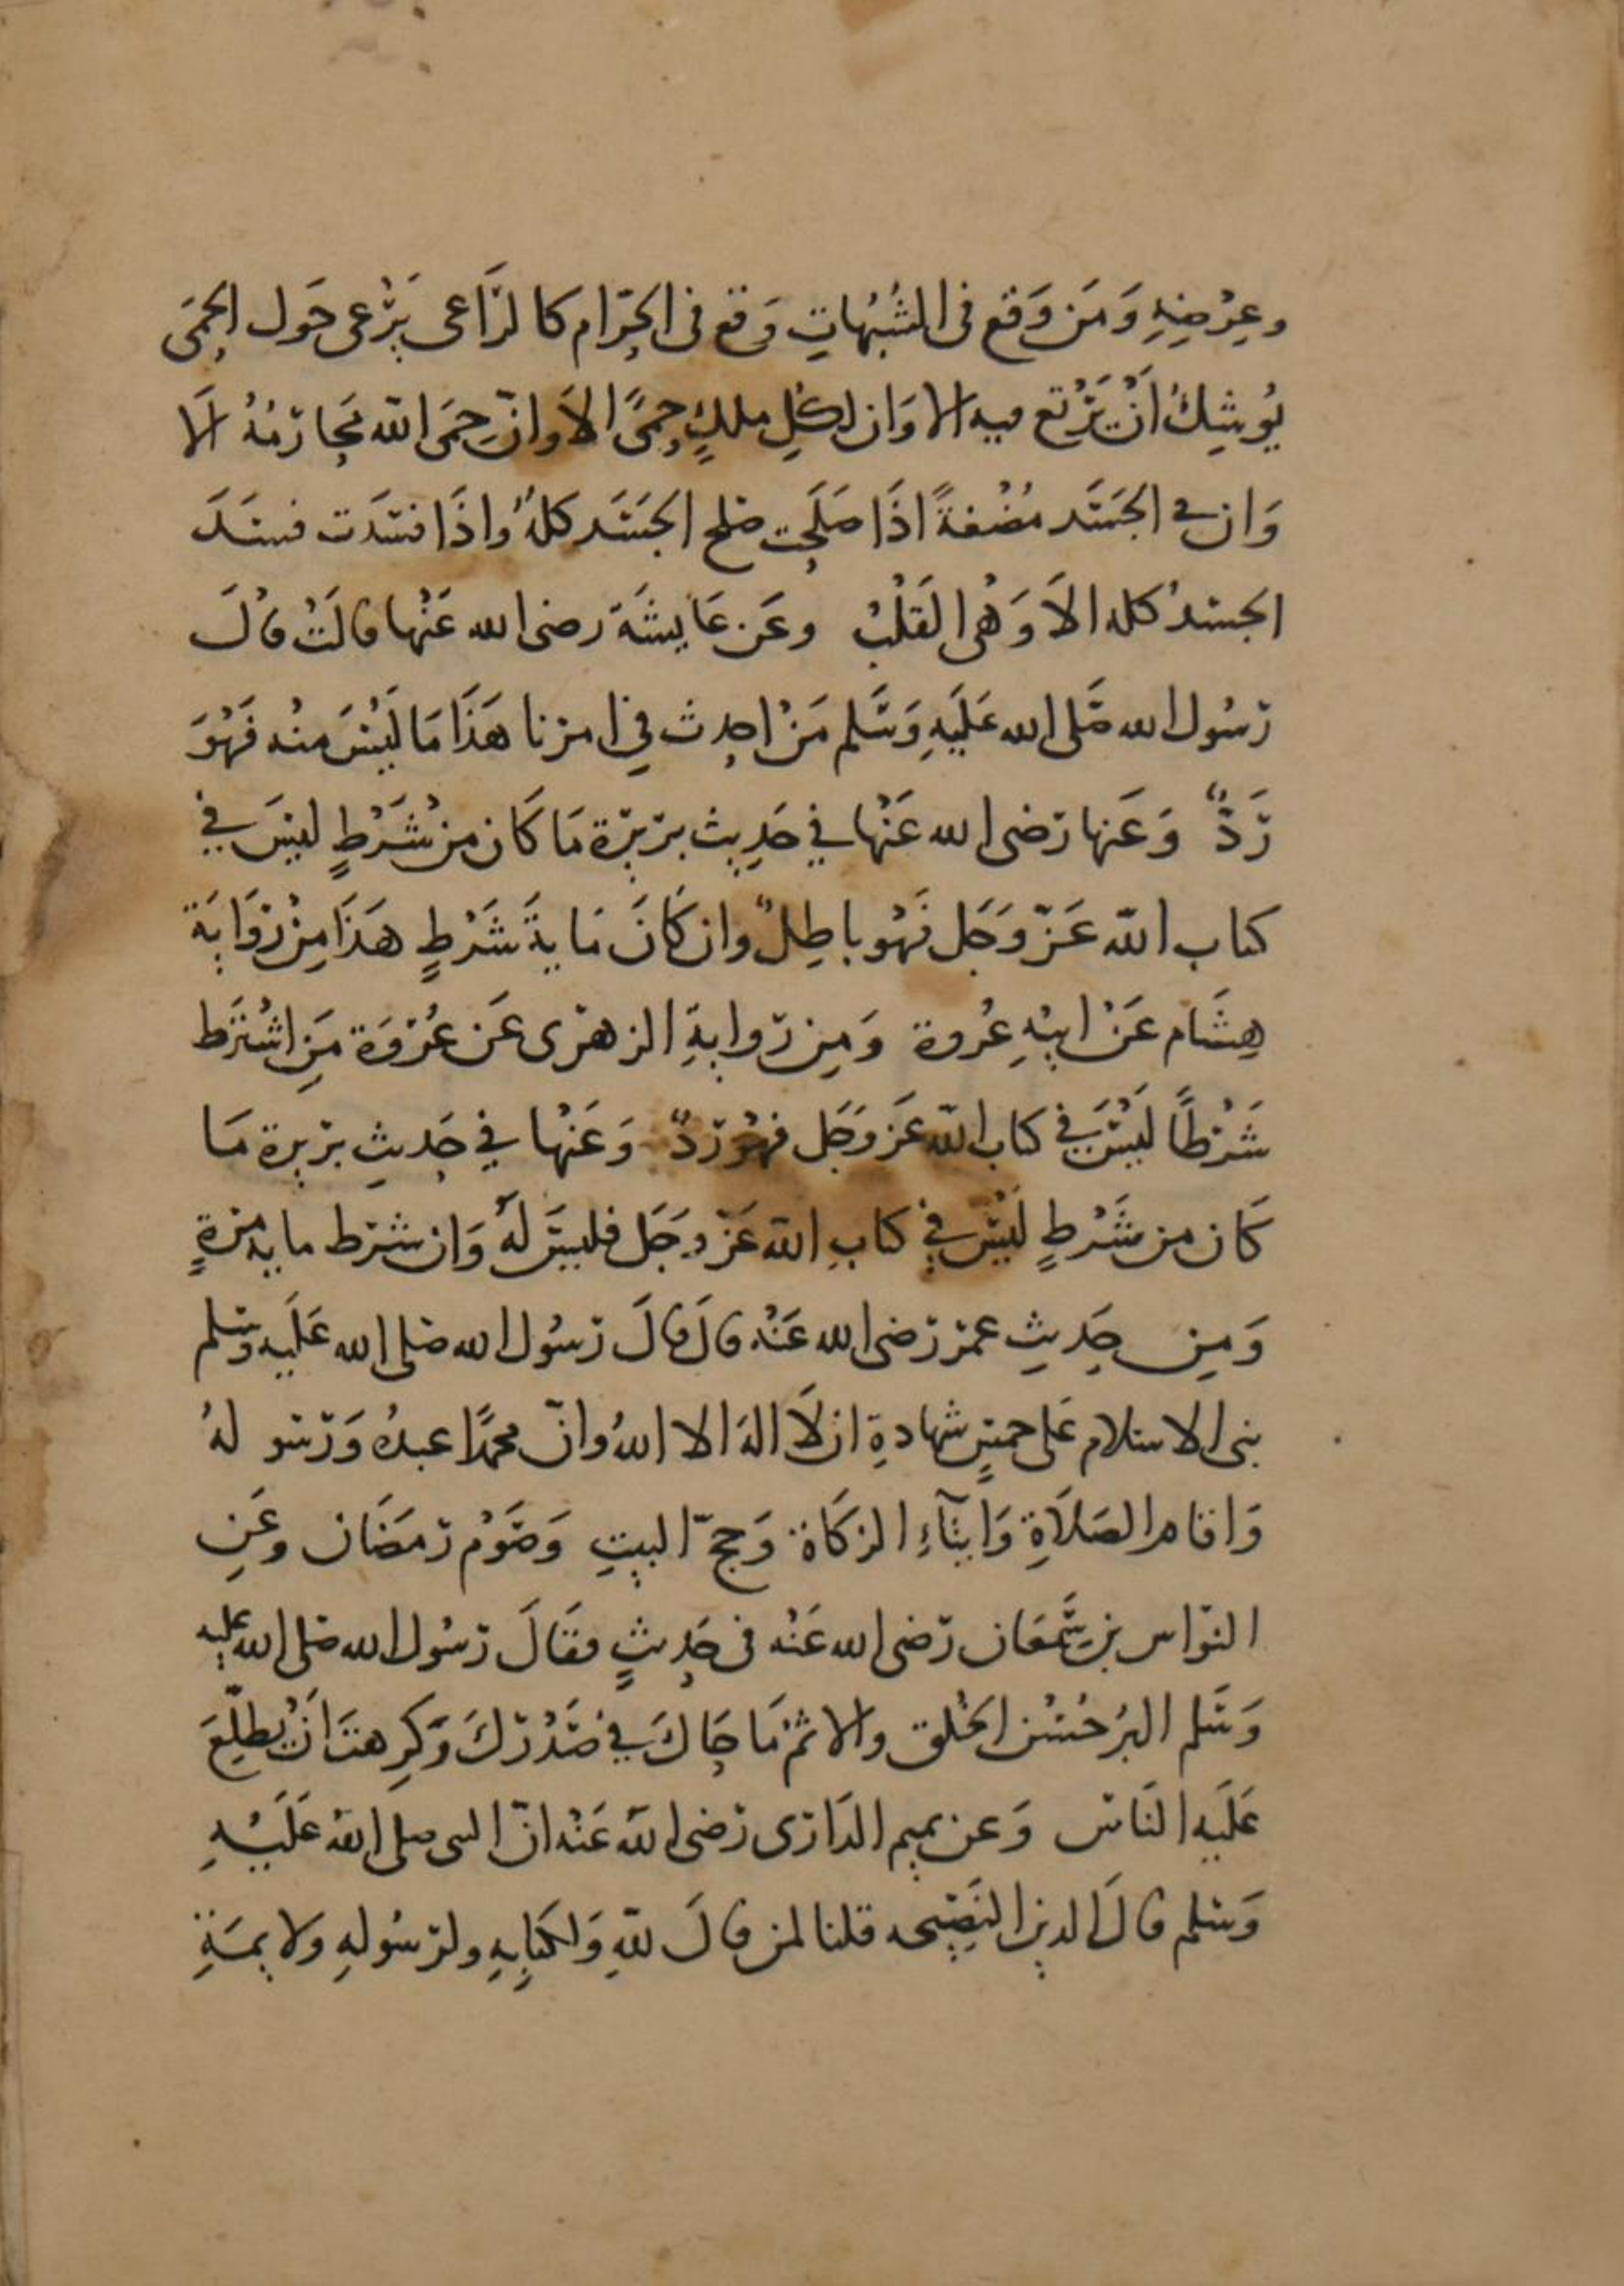 وعِرْضِهِ وَمَن وَقع فى الشُبُهَاتِ وَقع فى الحَرَام كالرَّاعى يَرْعى حَول الحِمَى
يُوشِكُ اَنْ يَرْتع فيه الا وَان لكلِ ملكٍ حِمىً الاَ وانّ حِمَى الله مَحَارمُهُ اَلا
وَان في الجَسَد مُضْغةً اذَا صَلَحَت صلح الجَسَد كلهُ واذَا فسَدَت فسَدَ
الجسدُ كله الاَ وَهْى القَلْبُ وعَن عَايشَة رضى الله عَنْها قالَتْ قالَ
رَسُول الله صَلى الله عَلَيهِ وَسَلم مَنْ احدث في امرنا هَذَا مَا لَيْسَ منْه فَهْوَ
رَدٌّ وَعَنها رَضى الله عَنْها في حَدِيث بريرة مَا كَان من شَرْطٍ ليسَ في
كتاب الله عَزّ وَجَل فَهْو باطِلٌ وان كَانَ مَايةَ شَرْطٍ هَذَا مِنْ رِوَايَة
هِشَام عَنْ ابيْهِ عُروة وَمِن رواية الزهرى عَن عُرْوَة مَنِ اشْتَرَط
شَرْطاً لَيْسَ في كتاب الله عَز وَجَل فهْوَ ردٌّ وَعَنْها في حَديثِ بريرة مَا
كَان من شَرْطٍ لَيْسَ في كتابِ الله عَزّ وجَل فليسَ لَهُ وَان شرط مايه مرةٍ
وَمِن حَديثِ عمر رَضى الله عَنْه قال قالَ رَسُول الله صَلى الله عَلَيه وسَلم
بنى الاسلام عَلى خمسٍ شهادةِ ان لاَ الهَ الا اللهُ وانّ محمدًا عبدُه وَرَسو لهُ
وَاقام الصَلاَةِ وَايتآءِ الزكَاة وَحجّ البيتِ وَصَوْم رمَضَان وعَنِ
النوّاس بن سَمْعَان رَضى الله عَنْه فى حَديثٍ فقَالَ رَسُول الله صَلى الله عليه
وَسَلم البرُ حُسْن الخُلق والاثمُ مَا حَاكَ في صَدْركَ وَكَرِهتَ اَنْ يطلِّعَ
عَلَيه النَاس وَعن تميم الدَارى رَضى الله عَنْه انّ النبى صلى الله عَلَيْهِ
وَسَلم قالَ الدين النَصِيحه قلنا لمن قالَ للهِ وَلكتابِهِ ولرَسُولهِ ولايمَةِ